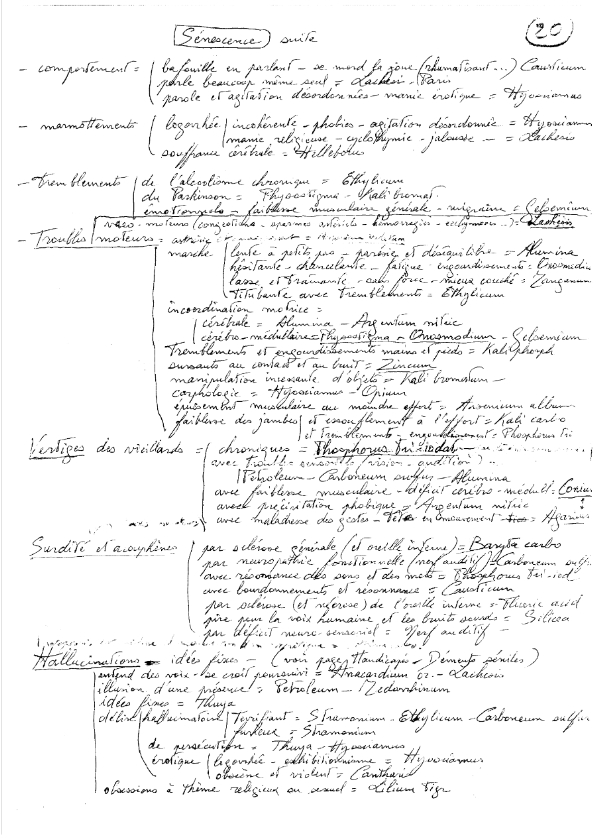 Sénescence suite
20
- comportement = bafouille en parlant - se mord la joue (rhumatisant...) Causticum
parle beaucoup même seul = Lachesis - Paris
parole et agitation désordonnées - manie érotique = Hyosciamus
- marmottements logorrhée incohérente - phobies - agitation désordonnée = Hyosciamus
manie religieuse - cyclothymie - jalousie - = Lachesis
souffrance cérébrale = Helleborus
- Tremblements de l'alcoolisme chronique = Ethylicum
du Parkinson = Physostigma - Kali bromat.
émotionnels - faiblesse musculaire générale - migraine = Gelsemium
vaso-moteurs (congestions - spasmes artériels - hémorragies - ecchymoses...) = Lachesis
- Troubles moteurs =
marche lente à petits pas - parésie et déséquilibre = Alumina
hésitante - chancelante - fatigue - engourdissements = Onosmodium
lasse et traînante - sans force - mieux couché = Zinganum
Titubante avec Tremblements = Ethylicum
incoordination motrice =
cérébrale = Alumina - Argentum nitric
cérébro-médullaire = Physostigma - Onosmodium - Gelsemium
Tremblements et engourdissements mains et pieds = Kali phosph
sursauts au contact et au bruit = Zincum
manipulation incessante d'objets = Kali bromatum -
carphologie = Hyosciamus - Opium
épuisement musculaire au moindre effort = Arsenicum album
faiblesse des jambes et essoufflement à l'effort = Kali carbo
et tremblements - engourdissement = Phosphorus tri
Vertiges des vieillards = chroniques = Phosphorus Tri-iodat
avec troubles sensoriels (vision - audition) -
Petroleum - Carboneum sulfur - Alumina
avec faiblesse musculaire - déficit cérébro-médull = Conium
avec précipitation phobique = Argentum nitric
avec maladresse des gestes - Tête en mouvement = Agaricus
Surdité et acouphènes par sclérose générale (et oreille interne) = Baryta carbo
par neuropathie fonctionnelle (nerf auditif) = Carboneum sulf.
avec résonnance des sons et des mots = Phosphorus tri-iod
avec bourdonnements et résonnance = Causticum
par sclérose (et nécrose) de l'oreille interne = Fluoric acid
pire pour la voix humaine et les bruits sourds = Silicea
par déficit neuro sensoriel = Nerf auditif -
Hallucinations = idées fixes - (voir page Handicapés - Déments séniles)
entend des voix - se croit poursuivi = Anacardium or. - Lachesis
illusion d'une présence = Petroleum - Medorrhinum
idées fixes = Thuya
délire hallucinatoire Terrifiant = Stramonium - Ethylicum - Carboneum sulfur
furieux = Stramonium
de persécution = Thuya - Hyosciamus
érotique logorrhée - exhibitionnisme = Hyosciamus
obscène et violent = Cantharis
obsessions à thème religieux ou sexuel = Lilium Tigr